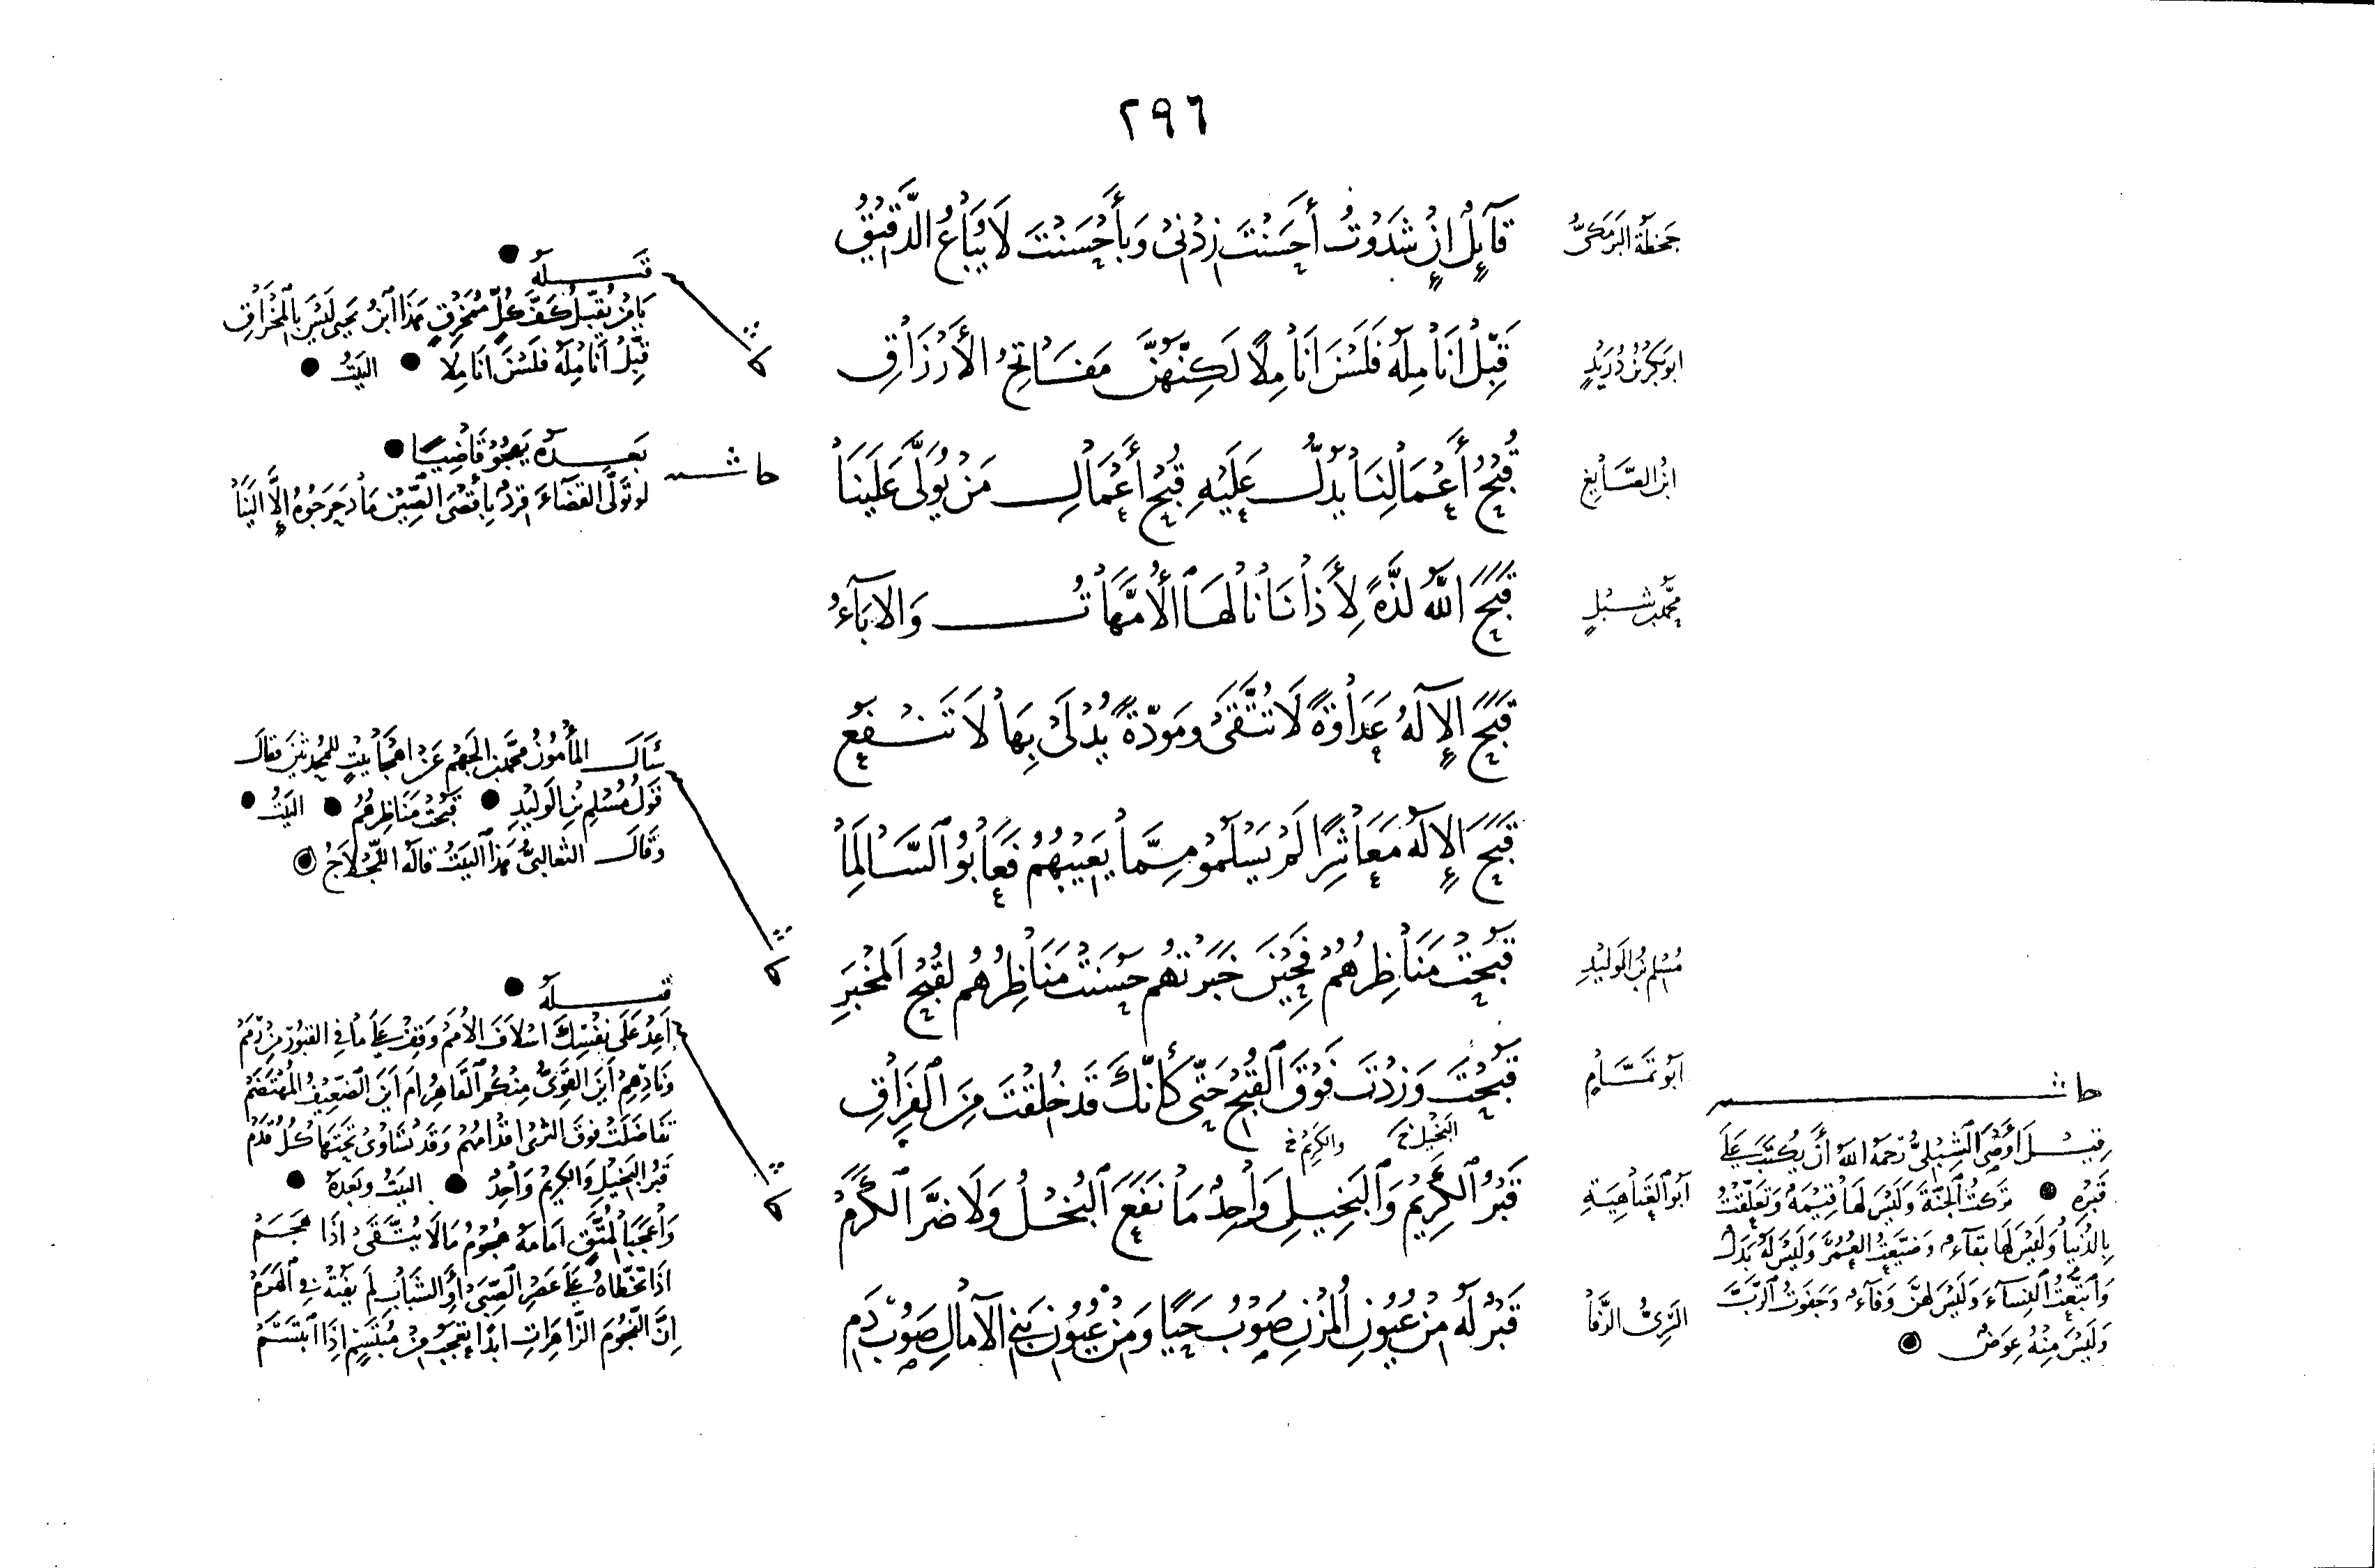 ٢٩٦
جحظة البرمكيّ
قَآئِلٌ إِنْ شَدَوْتُ أَحْسَنْتَ زِدْنِيْ وَبِأَحْسَنْتَ لَا يُبَاعُ الدَّقِيْقُ
ابو بكر بن دُرَيْدٍ
قَبِّلْ أَنَامِلَهُ فَلَسْنَ أَنَامِلًا لَكِنَّهُنَّ مَفَاتِحُ الأَرْزَاقِ
ابن الصَّايغ
قُبْحُ أَعْمَالِنَا يَدُلُّ عَلَيْهِ قُبْحُ أَعْمَالِ مَنْ يُوَلَّى عَلَيْنَا
محمد بن شبل
قَبَّحَ اللهُ لَذَّةً لِأَذَانَا نَالَهَا الأُمَّهَاتُ وَالآبَآءُ
قَبَّحَ الإِلَهُ عَدَاوَةً لَا تُتَّقَى وَمَوَدَّةً يُدْلَى بِهَا لَا تَنْفَعُ
قَبَحَ الإِلَهُ مَعَاشِرًا لَمْ يَسْلَمُوْ مِمَّا يَعِيْبُهُمُ فَعَابُوا السَّالِمَا
مُسْلم بنُ الوَلِيْدِ
قَبُحَتْ مَنَاظِرُهُمْ فَحِيْنَ خَبَرْتُهُم حَسُنَتْ مَنَاظِرُهُم لِقُبْحِ المَخْبَرِ
أبُو تَمَّامٍ
قَبُحْتَ وَزِدْتَ فَوْقَ الْقُبْحِ حَتَّى كَأَنَّكَ قَد خُلِقْتَ مِنَ الْفِرَاقِ
البخيل خ والكريم خ
أبو العَتَاهِيَةِ
قَبْرُ الكَرِيْمِ وَالْبَخِيلِ وَاحِدٌ مَا نَفَعَ الْبُخْلُ وَلَا ضَرَّ الكَرَمُ
السَّرِيُّ الرَّفَا
قَبْرٌ لَهُ مِنْ عُيُونِ الْمُزْنِ صَوْبُ حَيًا وَمِنْ عُيُونِ بَنِي الآمَالِ صَوْبُ دَمِ
قبله
يَا مَنْ يُقَبِّلُ كَفَّ كُلِّ مُمَخْرِقٍ هَذَا ابْنُ يَحْيَى لَيْسَ بِالْمِخْرَاقِ
قَبِّلْ أَنَامِلَهُ فَلَسْنَ أَنَامِلًا البَيْتُ
حاشية
بَعْدَهُ يَهجُوْ قَاضِيًا
لو تَوَلَّى القَضَآءَ قِرْدٌ بِأَقْصَى الصِّيْنِ مَا دَحْرَجُوْهُ إِلَّا إِلَيْنَا
سَأَلَ المأمُونُ محمَّد بن الجَهْم عَن أهْجَا بَيْتٍ للمُحْدثِيْنَ فقَالَ
قَوْلُ مُسْلِم بنِ الوَلِيْدِ قَبُحَتْ مَنَاظِرُهُمُ البَيْتُ
وَقَالَ الثعَالبيُّ هَذَا البَيْتُ قالَهُ اللَّجْلَاجُ
قبله
أَعِدْ عَلَى نَفْسِكَ أسْلَافَ الأُمَم وَقِفْ عَلَى مَا فِي القبُوْرِ مِنْ رِمَمْ
وَنَادِهِمْ أَيْنَ القَوِيُّ مِنْكُم القَاهِرُ أم أَيْنَ الضَّعِيْفُ المُهْتَضَمْ
تَفَاضَلَتْ فَوْقَ الثرَى أقْدَامُهُمْ وَقَدْ تَسَاوَىْ تَحْتَهَا كُلُّ قَدَمْ
قَبْرُ البَخِيْلِ وَالكَرِيْمِ وَاحِدٌ البَيْتُ وَبَعدَهُ
وَاعَجَبًا لِمُتَّقٍ أمَامَهُ هُجُوْمُ مَا لَا يُتَّقَى إِذَا هَجَمْ
إذَا تَخَطَّاهُ عَلَى عَصْرِ الصِّبَى أَوِ الشَّبَابِ لَم يَفُتْهُ فِي الْهَرَمْ
إنَّ النّجُومَ الزَّاهِرَاتِ أبَدًا تعْجَبُ مِنْ مُبْتَسِمٍ إِذَا ابْتَسَمْ
حاشية
قِيْلَ أَوْصَى الشِّبْلِيُّ رَحمَهُ اللهُ أنْ يُكتَبَ عَلَى
قَبْرِهِ تَرَكتُ الجَنَّةَ وَلَيْسَ لَهَا قِيْمَةٌ وَتَعَلَّقْتُ
بِالدُّنْيَا وَلَيْسَ لَهَا بَقَآءٌ وَضَيَّعْتُ العُمُرَ وَلَيْسَ لَهُ بَدَلٌ
وَاتَّبَعْتُ النِّسَآءَ وَلَيْسَ لَهُنَّ وَفَآءٌ وَجَفَوْتُ الرَّبَّ
وَلَيْسَ مِنْهُ عِوَضٌ